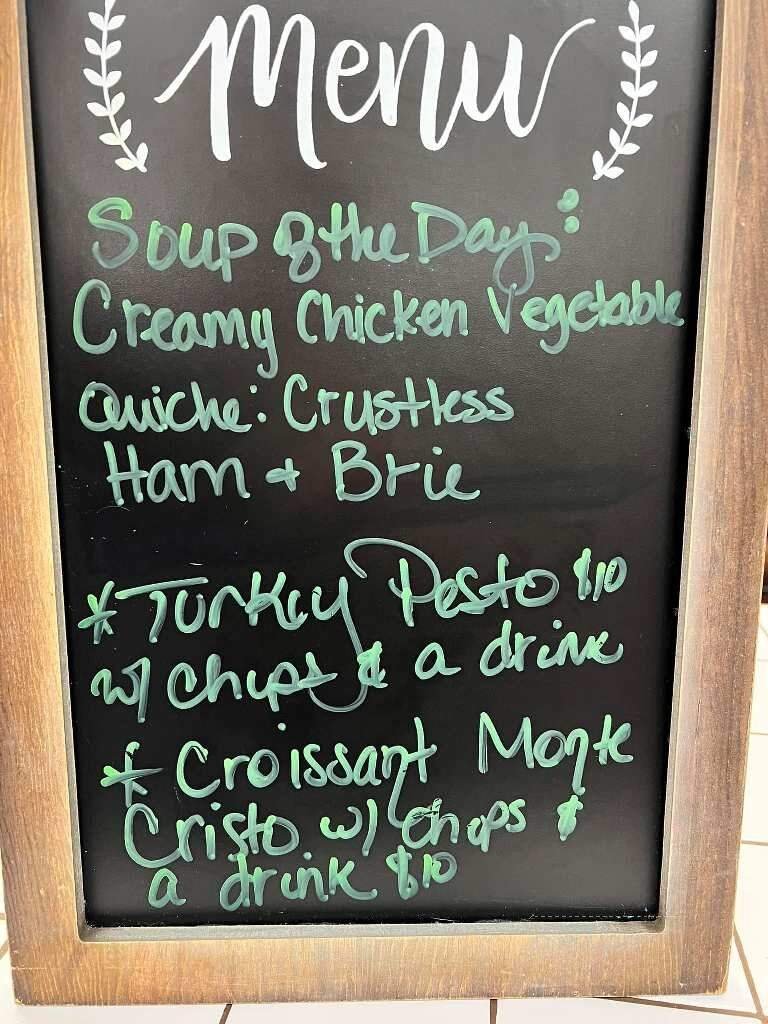 Menu
Soup of the Day:
Creamy Chicken Vegetable
Quiche: Crustless
Ham + Brie
* Turkey Pesto $10
w/ chips & a drink
* Croissant Monte
Cristo w/ chips &
a drink $10